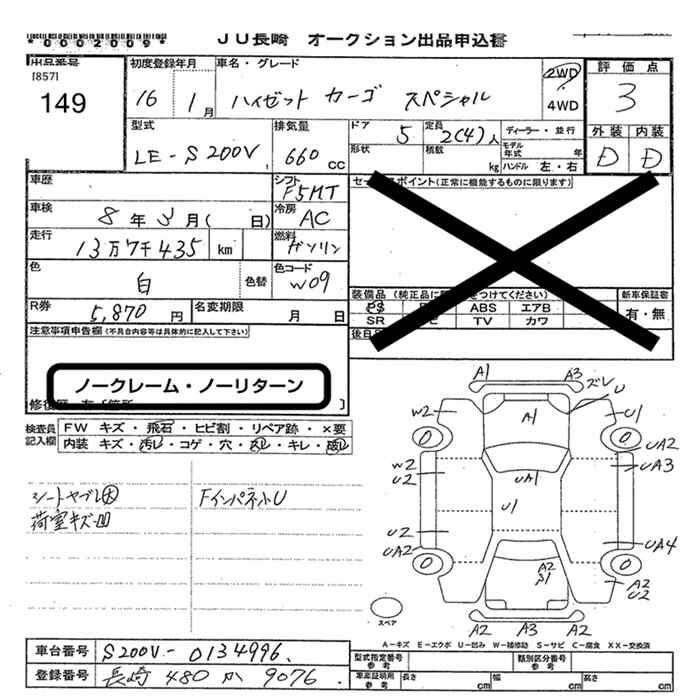 *0002009*
JU長崎 オークション出品申込書
出品番号
[857]
149
初度登録年月
16 1月
車名・グレード
ハイゼット カーゴ スペシャル
2WD
4WD
評価点
3
外装 内装
D D
型式
LE-S200V
排気量
660 CC
ドア
5
定員
2(4)人
形状
積載
kg
ディーラー・並行
モデル年式 年
ハンドル 左・右
車歴
シフト
F5MT
セー スポイント(正常に機能するものに限ります)
車検
8年3月( 日)
冷房
AC
走行
13万7千435 km
燃料
ガソリン
色
白
色替
色コード
W09
R券
5,870円
名変期限
月 日
装備品 (純正品に をつけてください)
PS ABS エアB
SR TV カワ
新車保証書
有・無
注意事項申告欄(不具合内容等は具体的に記入して下さい)
ノークレーム・ノーリターン
検査員記入欄
FW キズ・飛石・ヒビ割・リペア跡・×要
内装 キズ・汚レ・コゲ・穴・スレ・キレ・破レ
シートヤブレ大
荷室キズ凹
FインパネットU
A1 A3 ズレ U
W2 A1 U1
UA2
W2 U2 UA1 UA3
U1
U2 UA2 UA4
A2 S1 A2 U2
スペア
A2 A3 A2
A-キズ E-エクボ U-凹み W-補修跡 S-サビ C-腐食 XX-交換済
車台番号
S200V-0134996
登録番号
長崎 480 か 9076
型式指定番号 参考
類別区分番号 参考
車庫証明用 参考
長さ cm
幅 cm
高さ cm